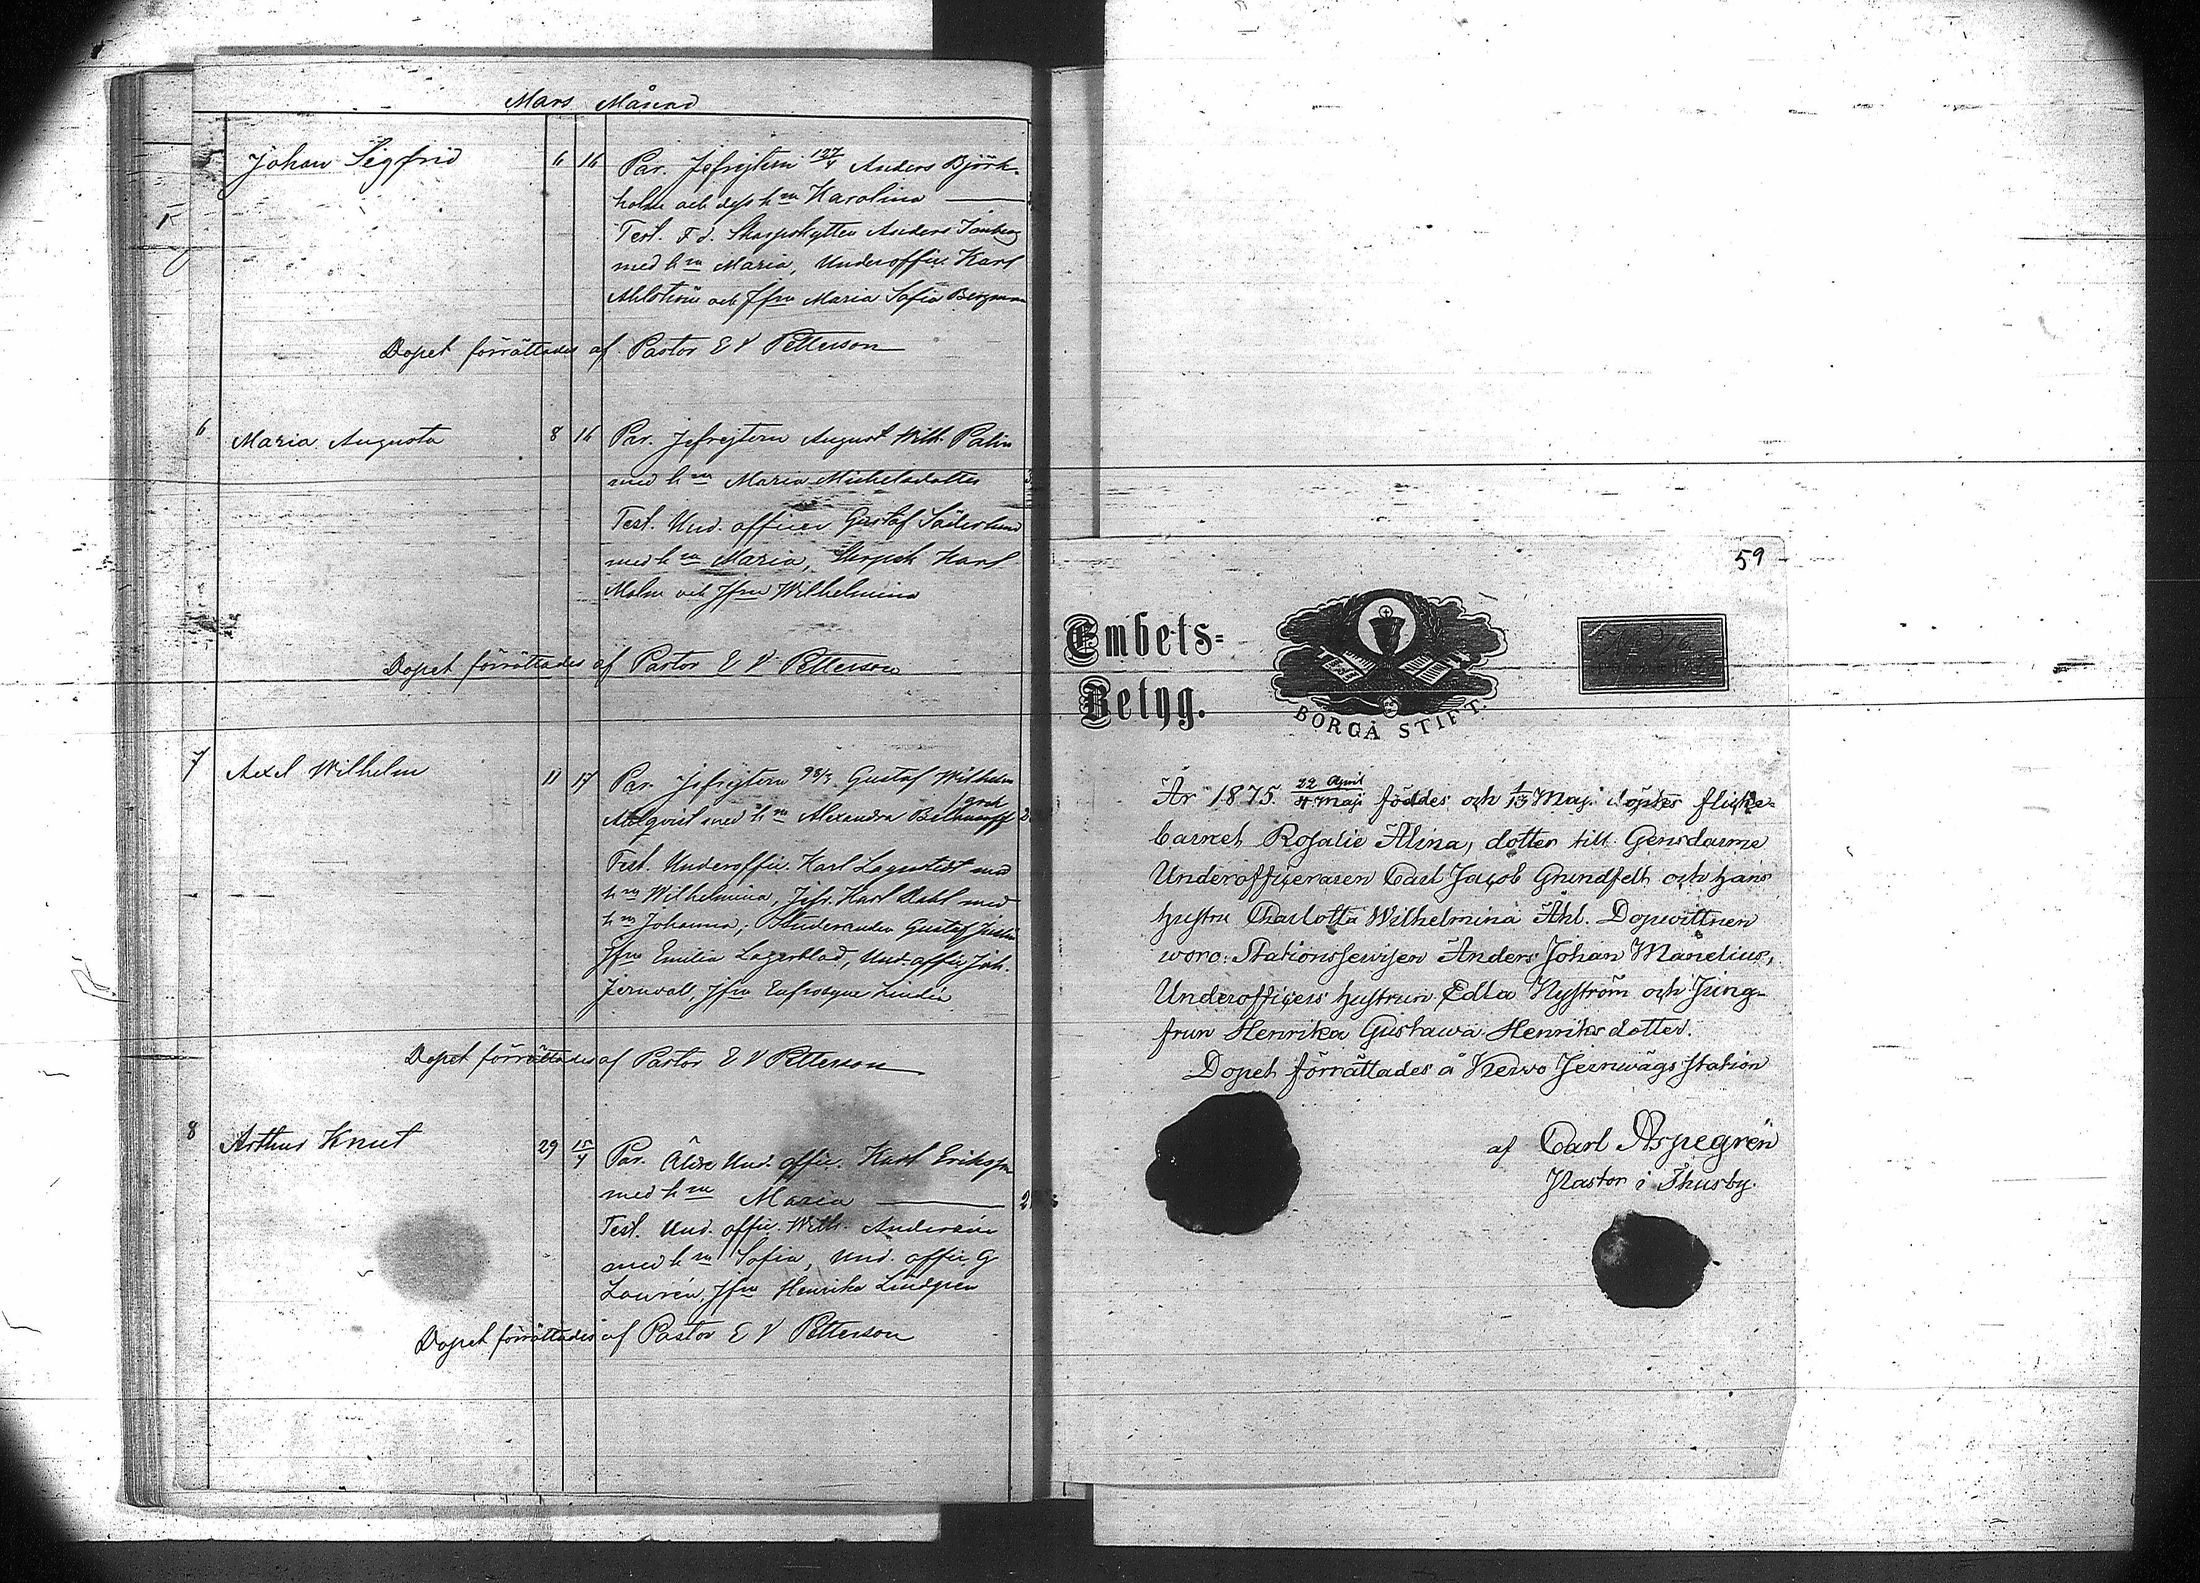 Mars Månad
5 Johan Sigfrid 6 16 Par. Jefrejtern 127/4 Anders Björk-
holm och dess h:u Karolina
Test. F d. Skarpskytten Anders
med h:u Maria, Underoffic. Karl
Ahlström och Jfru Maria Sofia Bergman
Dopet förrättades af Pastor E V Petterson
6 Maria Augusta 8 16 Par. Jefrejtern August Wilh. Palin
med h:u Maria Michelsdotter
Test. Und. officer Gustaf Söderlund
med h:u Maria, Skarpsk Karl
Malm och Jfru Wilhelmina
Dopet förrättades af Pastor E V Petterson
7 Axel Wilhelm 11 17 Par. Jefrejtern 98/3 Gustaf Wilhelm
med h:u Alexandra
Test. Underoffic. Karl Lagerstedt med
h:u Wilhelmina, Jefr. Karl Dahl med
h:u Johanna, Studeranden Gustaf
Jfru Emilia Lagerblad, Und. offic Joh.
Jernvall, Jfru Eufrosyne Lindén
Dopet förrättades af Pastor E V Petterson
8 Arthur Knut 29 15/4 Par. Äldre Und. offic. Karl Eriksson
med h:u Maria
Test. Und. offic. Wilh. Andersin
med h:u Sofia, Und. offic. G
Laurén, Jfru Henrika Lindgren
Dopet förrättades af Pastor E V Petterson
59
Embets-
Betyg.
BORGÅ STIFT.
År 1875. 22 April/4 Maj. föddes och 1/13 Maj. döptes flicke-
barnet Rosalie Alina, dotter till Gensdarme
Underofficeraren Carl Jacob Grundfelt och hans
hustru Charlotta Wilhelmina Åhl. Dopvittnen
woro: Stationskarlen Anders Johan Mandelius,
Underofficers hustrun Edla Nyström och Jung-
frun Henrika Gustawa Henriksdotter.
Dopet förrättades å Kervo Jernvägs Station
af Carl Aspegrén
Pastor i Thusby.